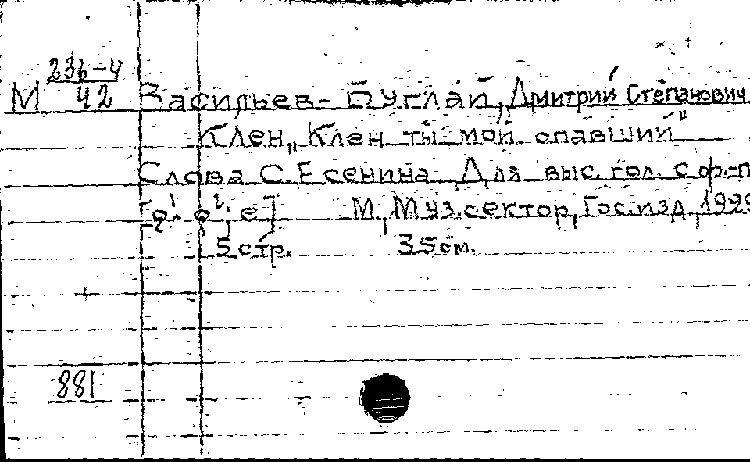 236-4
М 42
Васильев-Буглай, Дмитрий Степанович
Клен, "Клен ты мой опавший"
Слова С. Есенина. Для выс. гол. с ф.-п.
М., Муз.сектор, Гос.изд., 1929
5 стр. 35 см.
881